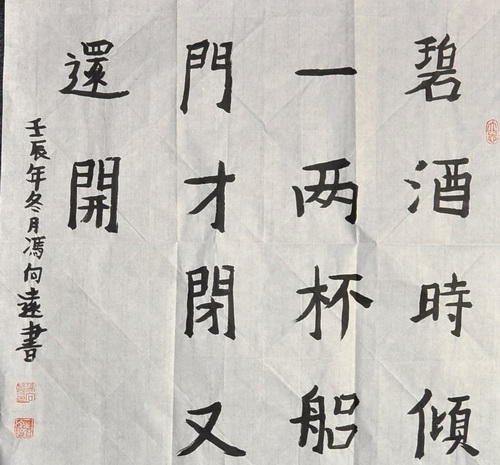 碧酒時傾
一两杯船
門才閉又
還開
壬辰年冬月馮向遠書